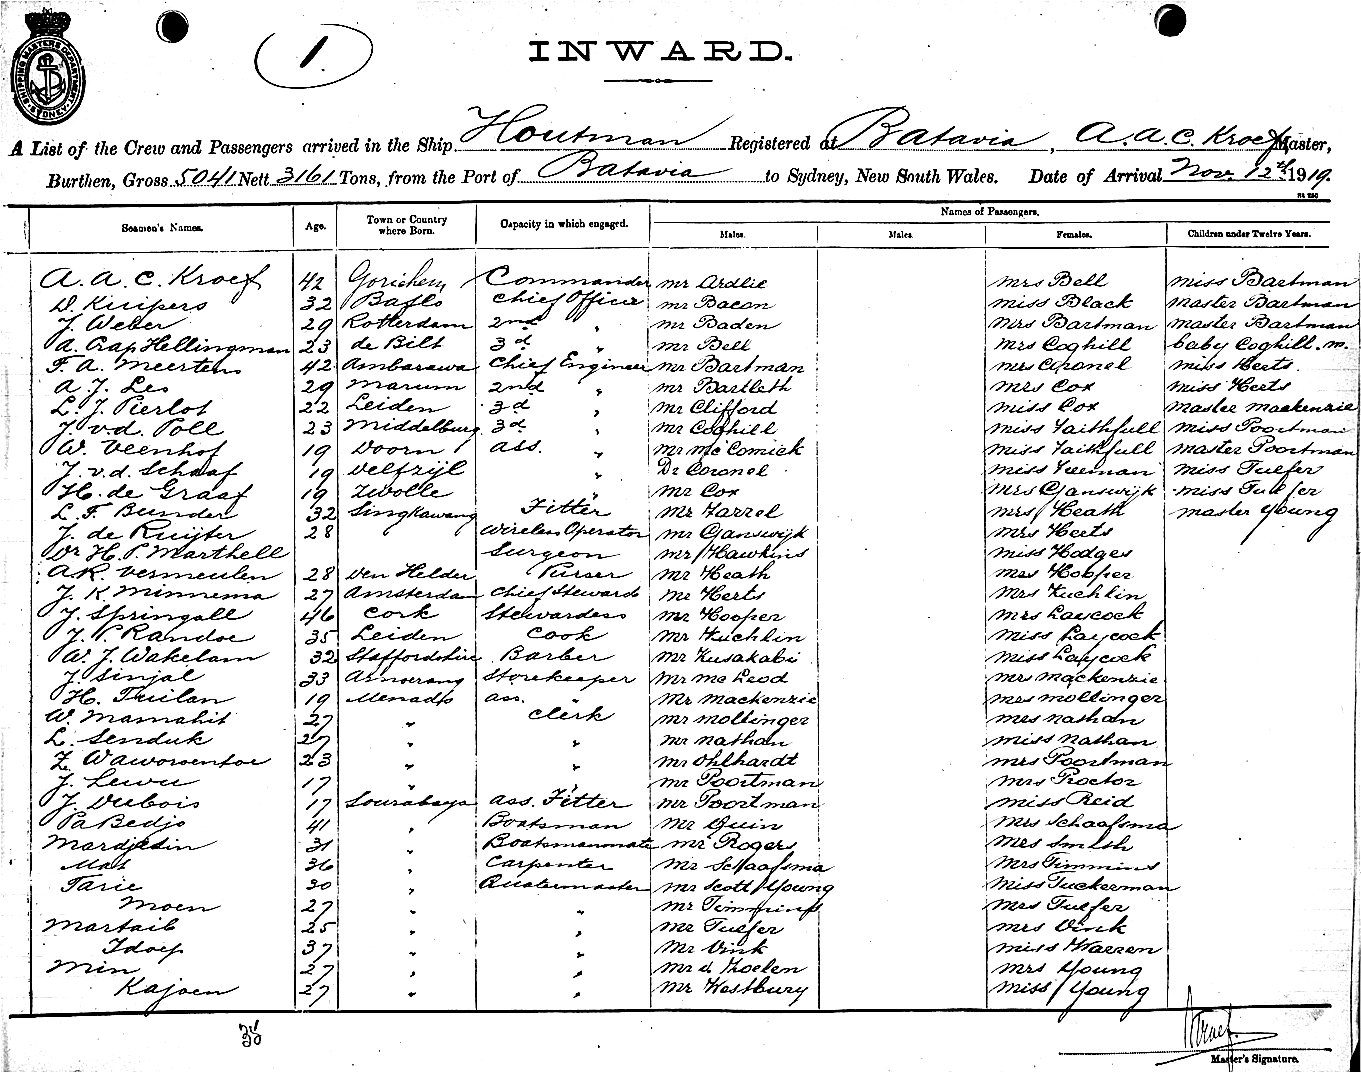 SHIPPING MASTERS DEPARTMENT SYDNEY
1.
INWARD.
A List of the Crew and Passengers arrived in the Ship Houtman Registered at Batavia, A.A.C. Kroef Master,
Burthen, Gross 5041 Nett 3161 Tons, from the Port of Batavia to Sydney, New South Wales. Date of Arrival Nov. 12th 1919.
Names of Passengers.
Seamen's Names. Age. Town or Country where Born. Capacity in which engaged. Males. Males. Females. Children under Twelve Years.
A. A. C. Kroef 42 Gorichem Commander mr Ardlie mrs Bell miss Bartman
D. Kuipers 32 Baflo Chief Officer mr Bacon miss Black master Bartman
J. Weber 29 Rotterdam 2nd " mr Baden mrs Bartman master Bartman
A. Crap Hellingman 23 de Bilt 3d " mr Bell mrs Coghill baby Coghill. m.
F. A. Meertens 42 Ambarawa Chief Engineer mr Bartman mrs Coronel miss Herts.
A. J. Les 29 Marum 2nd " mr Bartleth mrs Cox miss Herts
L. J. Pierlot 22 Leiden 3d " mr Clifford miss Cox master mackenzie
J. v.d. Poll 23 Middelburg 3d " mr Coghill miss Faithfull miss Poortman
W. Veenhof 19 Doorn ass. " mr mc Comick miss Faithfull master Poortman
J. v.d. Schaaf 19 Delfzijl " Dr Coronel miss Freeman miss Tuefer
H. de Graaf 19 Zwolle " mr Cox mrs Ganswijk miss Tuefer
L. F. Bunder 32 Singkawang Fitter mr Farrel mrs Heath master Young
J. de Ruijter 28 Wireless Operator mr Ganswijk mrs Herts
Dr H. P. Marthell Surgeon mr Hawkins miss Hodges
A.R. Vermeulen 28 den Helder Purser mr Heath mrs Hooper
J. K. Minnema 27 Amsterdam Chief Steward mr Herts mrs Kuchlin
J. Springall 46 Cork Stewardess mr Hooper mrs Laycock
J. P. Randoe 35 Leiden Cook mr Kuchlin miss Laycock
W. J. Wakelam 32 Staffordshire Barber mr Kusakabi miss Laycock
J. Sinjal 33 Amoerang Storekeeper mr mc Leod mrs mackenzie
H. Tuilan 19 Menado ass. " mr mackenzie mrs mollinger
W. Mamahit 27 " Clerk mr mollinger mrs nathan
L. Senduk 27 " " mr nathan miss nathan
Z. Waworoentoe 23 " " mr Ohlhardt mrs Poortman
J. Lewu 17 " " mr Poortman mrs Proctor
J. Dubois 17 Sourabaya ass. Fitter mr Poortman miss Reid
Pa Bedjo 41 " Boatsman mr Quin mrs Schaafsma
Mardjedin 31 " Boatsmanmate mr Rogers mrs Smish
Mat 36 " Carpenter mr Schaafsma mrs Timmins
Tarie 30 " Quatermaster mr Scott Young miss Tuckerman
Moen 27 " " mr Timmins mrs Tuefer
Martaib 25 " " mr Tuefer mrs Vink
Idoep 37 " " mr Vink miss Warren
Min 27 " " mr d Koelen mrs Young
Kajoen 27 " " mr Westbury miss Young
35
Kroef.
Master's Signature.